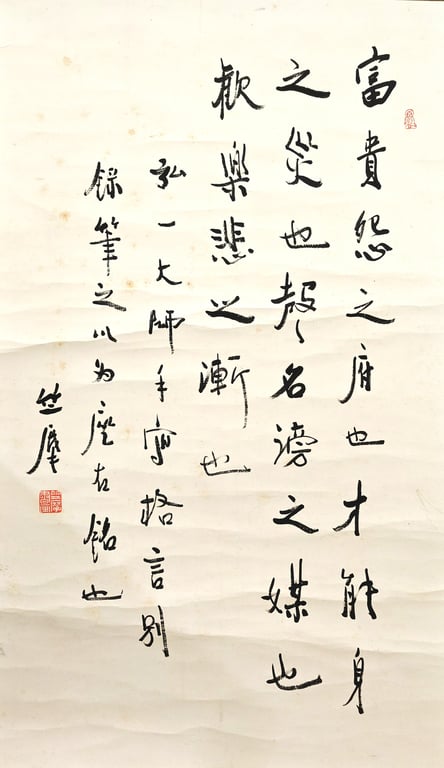 富貴怨之府也才能身
之災也聲名謗之媒也
歡樂悲之漸也
弘一大師手寫格言別
錄筆之以為座右銘也
竺摩